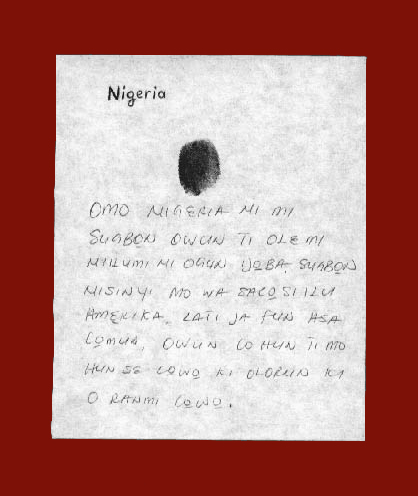 Nigeria
OMO NIGERIA NI MI
SUGBON OWUN TI OLE MI
NILUMI NI OGUN IJOBA, SUGBON
NISINYI MO WA SACOSI ILU
AMERIKA, LATI JA FUN ASA
COMUA, OWUN CO HUN TI MO
HUN SE LOWO KI OLORUN KI
O RANMI LOWO.